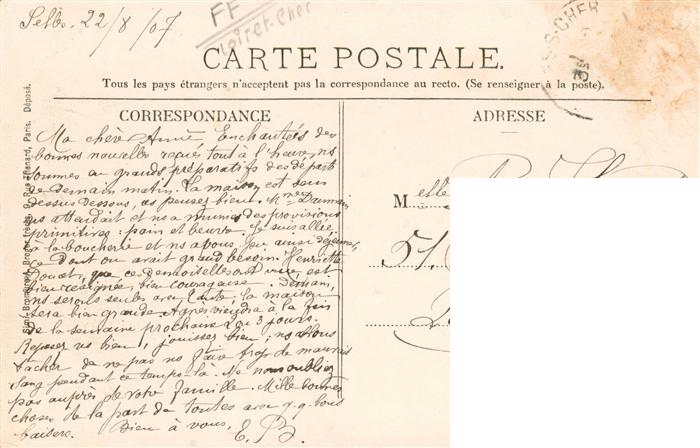 Selles. 22/8/07
FF
Loir et-Cher
CHER
CARTE POSTALE.
Tous les pays étrangers n'acceptent pas la correspondance au recto. (Se renseigner à la poste).
CORRESPONDANCE
ADRESSE
Frères, 9, Rue Thénard, Paris. Déposé.
Ma chère Amie Enchantées des
bonnes nouvelles reçues tout à l'heure, ns
sommes au grands préparatifs des départ
de demain matin. La maison est sens
dessus dessous, as pensez bien. Mme
ns attendait et ns a munies des provisions
primitives : pain et beurre. Je suis allée
à la boucherie et ns avons pu ainsi déjeuner,
ce dont on avait grand besoin. Henriette
Douet, que ces demoiselles ont vue, est
bien resignée, bien courageuse. Demain,
ns serons seules avec Tante, la maison
sera bien grande. Agnès viendra à la fin
de la semaine prochaine 2 ou 3 jours.
Reposez vs bien, jouissez bien, ns allons
tâcher de ne pas ns faire trop de mauvais
sang pendant ce temps-là. Ne ns oubliez
pas auprès de votre famille. Mille bonnes
choses de la part de toutes avec q.q. bons
baisers. Bien à vous, E. B.
Melle
51.